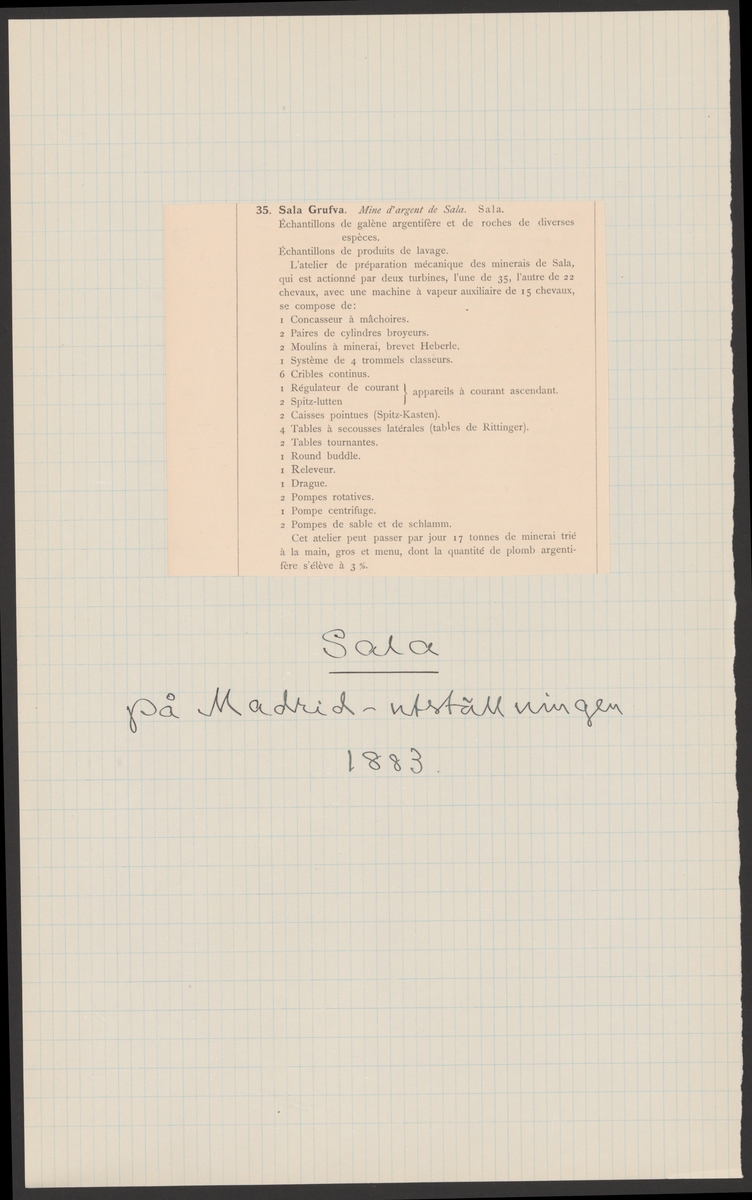 35. Sala Grufva. Mine d'argent de Sala. Sala.
Échantillons de galène argentifère et de roches de diverses
espèces.
Échantillons de produits de lavage.
L'atelier de préparation mécanique des minerais de Sala,
qui est actionné par deux turbines, l'une de 35, l'autre de 22
chevaux, avec une machine à vapeur auxiliaire de 15 chevaux,
se compose de:
1 Concasseur à mâchoires.
2 Paires de cylindres broyeurs.
2 Moulins à minerai, brevet Heberle.
1 Système de 4 trommels classeurs.
6 Cribles continus.
1 Régulateur de courant } appareils à courant ascendant.
2 Spitz-lutten
2 Caisses pointues (Spitz-Kasten).
4 Tables à secousses latérales (tables de Rittinger).
2 Tables tournantes.
1 Round buddle.
1 Releveur.
1 Drague.
2 Pompes rotatives.
1 Pompe centrifuge.
2 Pompes de sable et de schlamm.
Cet atelier peut passer par jour 17 tonnes de minerai trié
à la main, gros et menu, dont la quantité de plomb argenti-
fère s'élève à 3 %.
Sala
på Madrid-utställningen
1883.